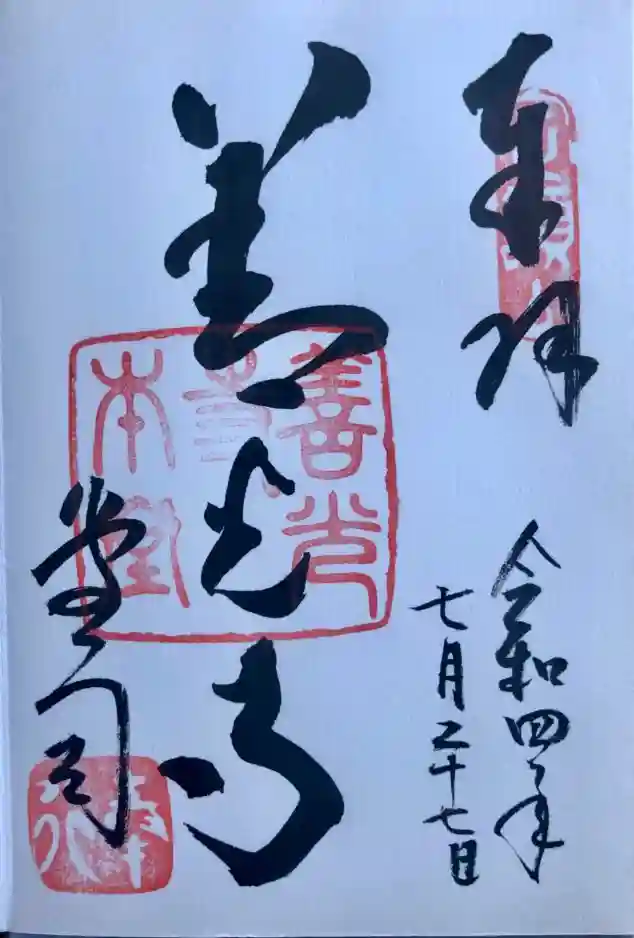 奉拝
令和四年
七月二十七日
善光寺
堂司
善光
本堂